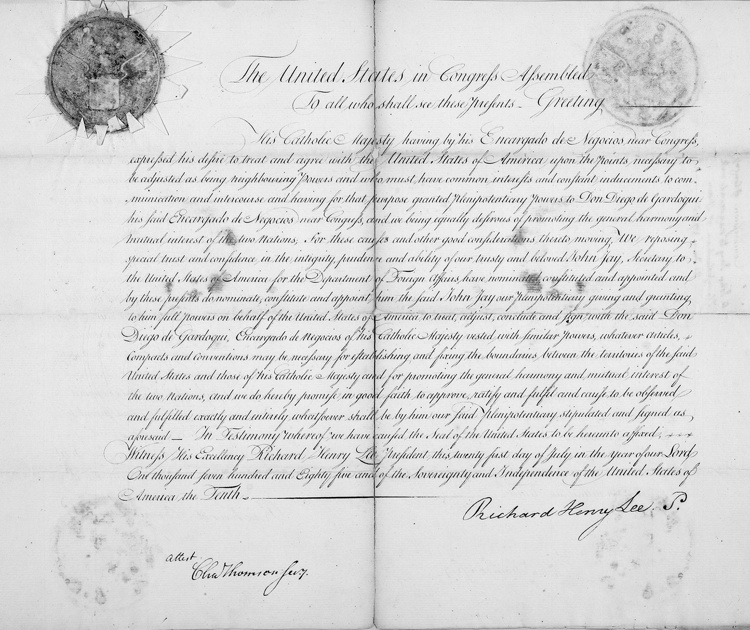 The United States in Congress Assembled
To all who shall see these Presents - Greeting
His Catholic Majesty having by his Encargado de Negocios near Congress,
expressed his desire to treat and agree with the United States of America upon the Points necessary to
be adjusted as being neighbouring Powers and who must have common interests and constant inducements to com
munication and intercourse and having for that purpose granted Plenipotentiary Powers to Don Diego de Gardoqui
his said Encargado de Negocios near Congress, and we being equally desirous of promoting the general harmony and
mutual interest of the two Nations, For these causes and other good considerations thereto moving, We reposing
special trust and confidence in the integrity, prudence and ability of our trusty and beloved John Jay, Secretary to
the United States of America for the Department of Foreign Affairs, have nominated constituted and appointed and
by these presents do nominate, constitute and appoint him the said John Jay our Plenipotentiary giving and granting
to him full Powers on behalf of the United States of America to treat, adjust, conclude and sign with the said Don
Diego de Gardoqui, Encargado de Negocios of his Catholic Majesty vested with similar Powers, whatever articles,
Compacts and conventions may be necessary for establishing and fixing the boundaries between the territories of the said
United States and those of his Catholic Majesty and for promoting the general harmony and mutual interest of
the two Nations, and we do hereby promise in good faith to approve, ratify and fulfil and cause to be observed
and fulfilled exactly and entirely whatsoever shall be by him our said Plenipotentiary stipulated and signed as
aforesaid - In Testimony whereof we have caused the Seal of the United States to be hereunto affixed;
Witness His Excellency Richard Henry Lee President this twenty first day of July in the year of our Lord
One thousand seven hundred and Eighty five and of the Sovereignty and Independence of the United States of
America the Tenth
Richard Henry Lee P.
attest
Cha Thomson Secy.